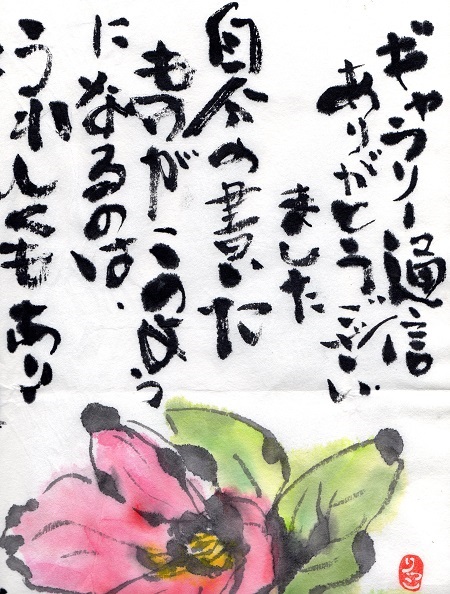 ギャラリー通信
ありがとうござい
ました
自分の書いた
ものがこのよう
になるのは、
うれしくもあり
りつこ